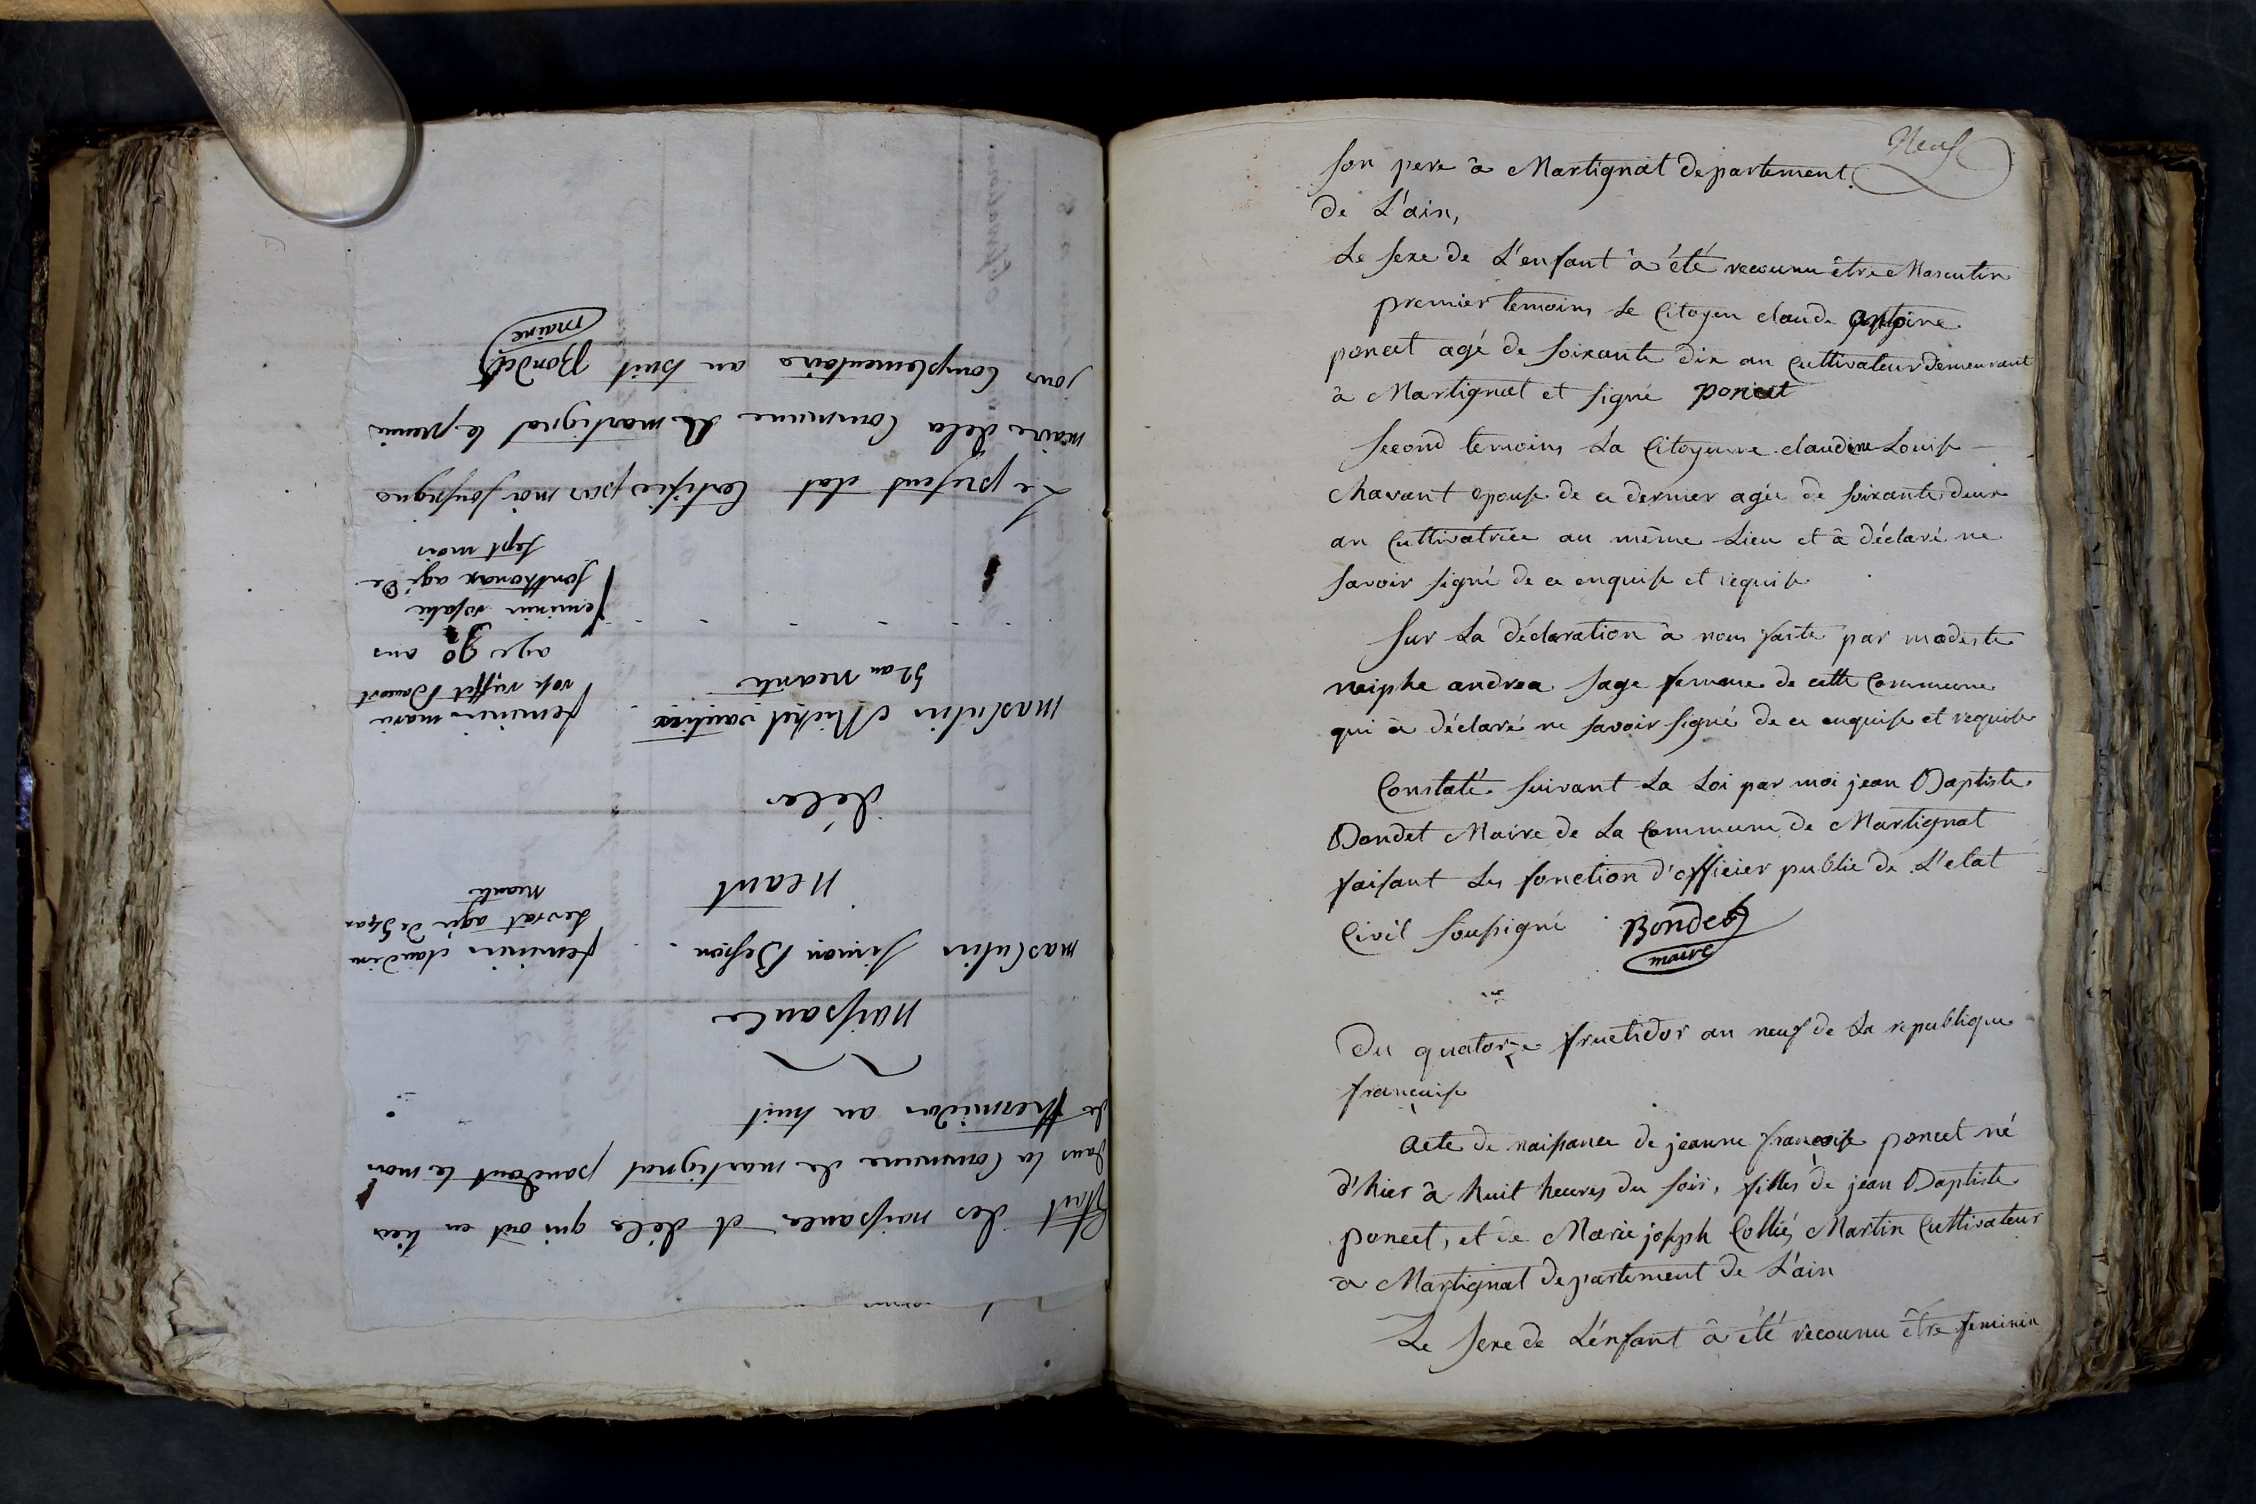 Etat des naissances et décès qui ont eu lieu
dans la Commune de martignat pendant le mois
de thermidor an huit
naissance
masculin simon Besson
feminin claudine
Levrat agée de 34 an
neant
décès
masculin Michel
52 an neant
feminin marie
rose ruffet
agee 90 ans
feminin rosalie
sonthonax agé de
sept mois
Le present etat Certifié par moi soussigné
maire de la Commune de martignat le premier
jour Complementaire an huit Bondet
maire
Neuf
son pere à Martignat departement
de L'ain,
Le sexe de L'enfant à été reconnu être Masculin
premier temoins le Citoyen claude antoine
poncet agé de soixante dix an Cultivateur demeurant
à Martignat et signé poncet
second temoins La Citoyenne claudine Louise
chavant epouse de ce dernier agée de soixante deux
an Cultivatrice au même Lieu et à déclaré ne
savoir signé de ce enquise et requise
sur La déclaration à nous faite par modeste
niphe andrea sage femme de cette Commune
qui à déclaré ne savoir signé de ce enquise et requise
Constaté suivant La Loi par moi jean Baptiste
Bondet Maire de La Commune de Martignat
faisant Les fonction d'officier public de L'etat
Civil soussigné Bondet
maire
Du quatorze fructidor an neuf de La republique
française
Acte de naissance de jeanne françoise poncet né
d'hier à huit heures du soir, filles de jean Baptiste
poncet, et de Marie joseph Collié Martin Cultivateur
a Martignat departement de L'ain
Le sexe de L'énfant à été reconnu être feminin